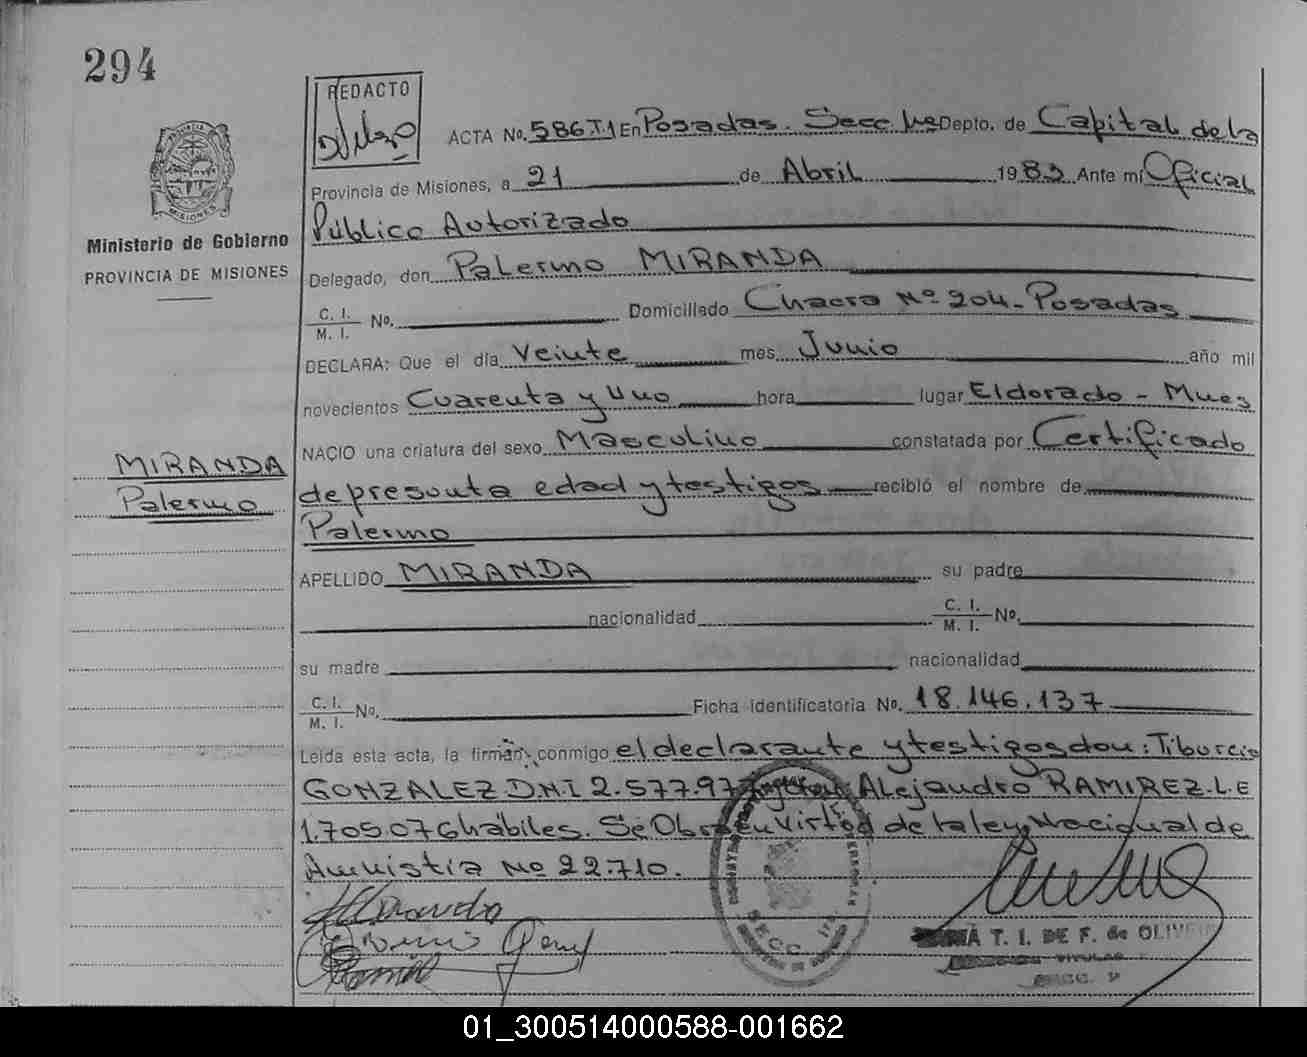 294
REDACTO
ACTA No. 586 T1 En Posadas. Secc 1ra Depto. de Capital de la
Provincia de Misiones, a 21 de Abril 1983 Ante mí Oficial
Público Autorizado
Ministerio de Gobierno
PROVINCIA DE MISIONES
Delegado, don Palermo MIRANDA
C. I.
M. I. No. Domiciliado Chacra Nº 204 - Posadas
DECLARA: Que el día Veinte mes Junio año mil
novecientos Cuarenta y Uno hora lugar Eldorado - Mnes
NACIO una criatura del sexo Masculino constatada por Certificado
MIRANDA
Palermo
de presunta edad y testigos recibió el nombre de
Palermo
APELLIDO MIRANDA su padre
nacionalidad C. I.
M. I. No.
su madre nacionalidad
C. I.
M. I. No. Ficha Identificatoria No. 18.146.137
Leída esta acta, la firman conmigo el declarante y testigos don: Tiburcio
GONZALEZ D.N.I 2.577.97 Alejandro RAMIREZ. L.E
1.705.076 hábiles. Se Obra en Virtud de la ley Nacional de
Amnistia Nº 22.710.
MISIONES
SECC.
T. I. DE F. de OLIVEIRA
TITULAR
SECC.
01_300514000588-001662